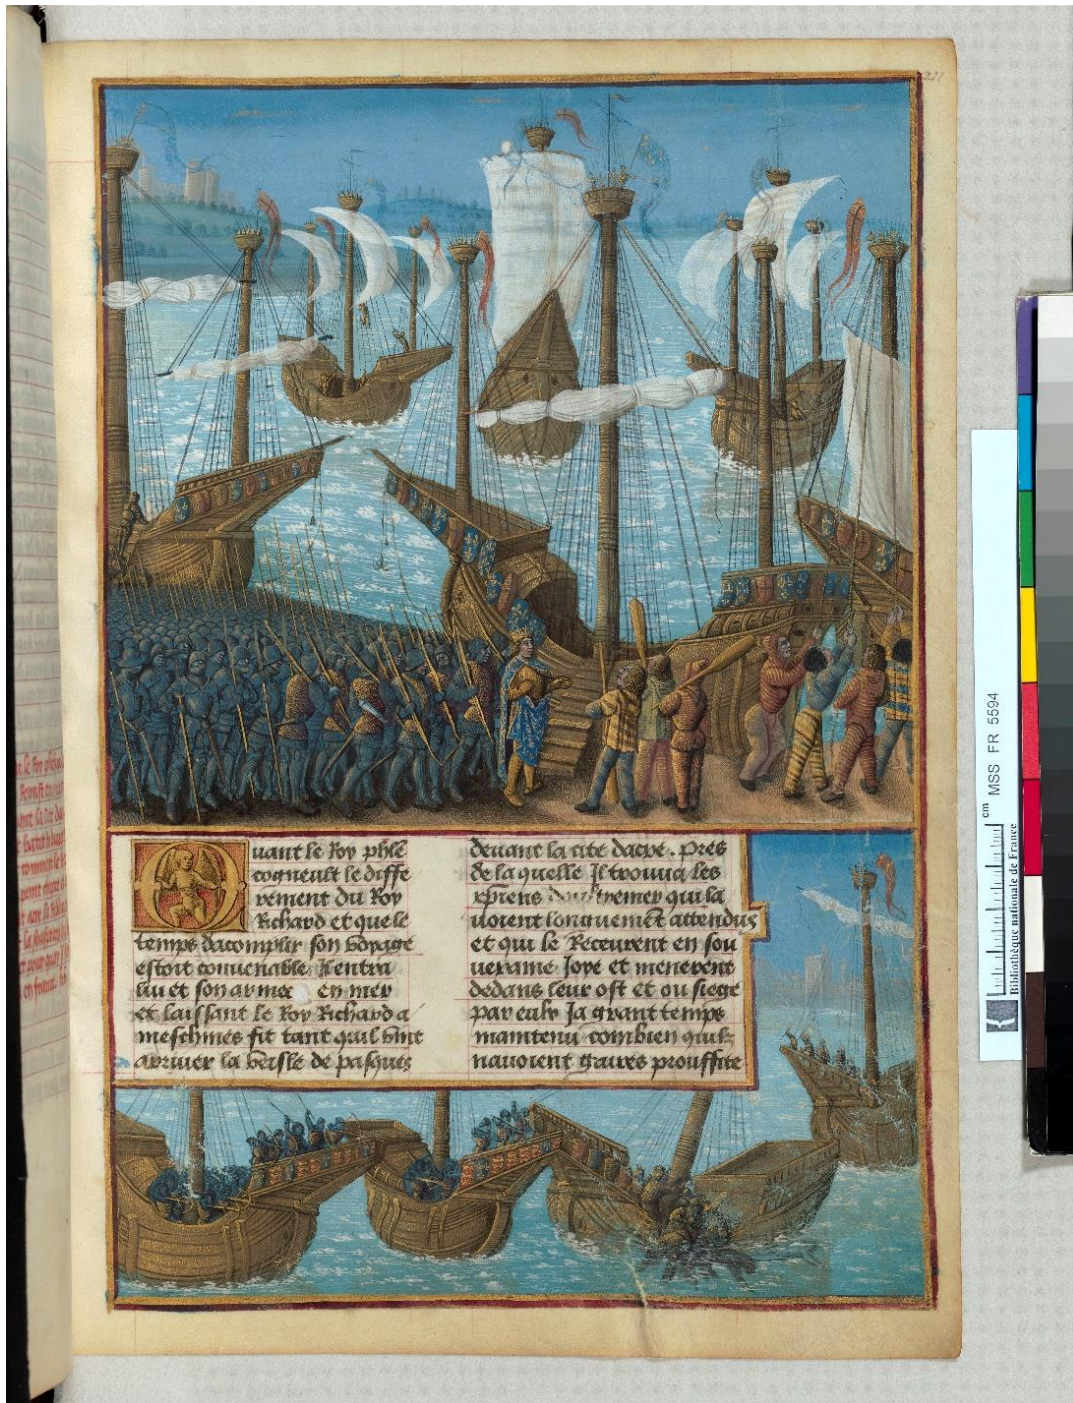 Quant le Roy phle
cogneult le diffe
rement du Roy
Richard et que le
temps dacomplir son voyage
estoit convenable Il entra
luy et son armee en mer
et laissant le Roy Richard a
meschines fit tant quil vint
arriver la veisle de pasques
devant la cite dacre. Pres
de la quelle Il trouva les
xpriens doultremer qui la
avoient longuement attendus
et qui le Receurent en sou
veraine Joye et menerent
dedans leur ost et ou siege
par eulx Ja grant temps
maintenu combien quilz
navoient gaires prouffite
221
cm
MSS FR 5594
Bibliothèque nationale de France